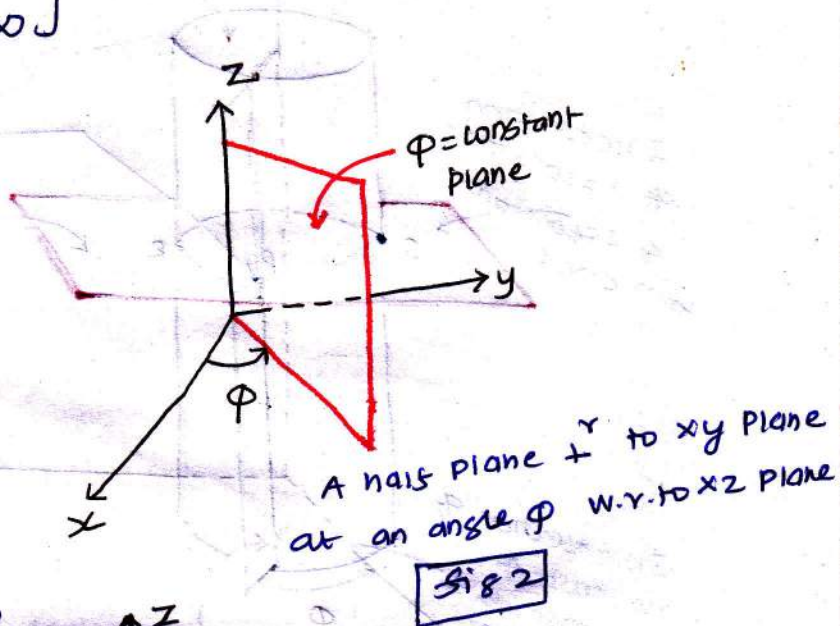 ∞]
Z
φ = constant
plane
y
φ
x
A half plane ⊥r to xy plane
at an angle φ w.r.to xz plane
fig 2
Z